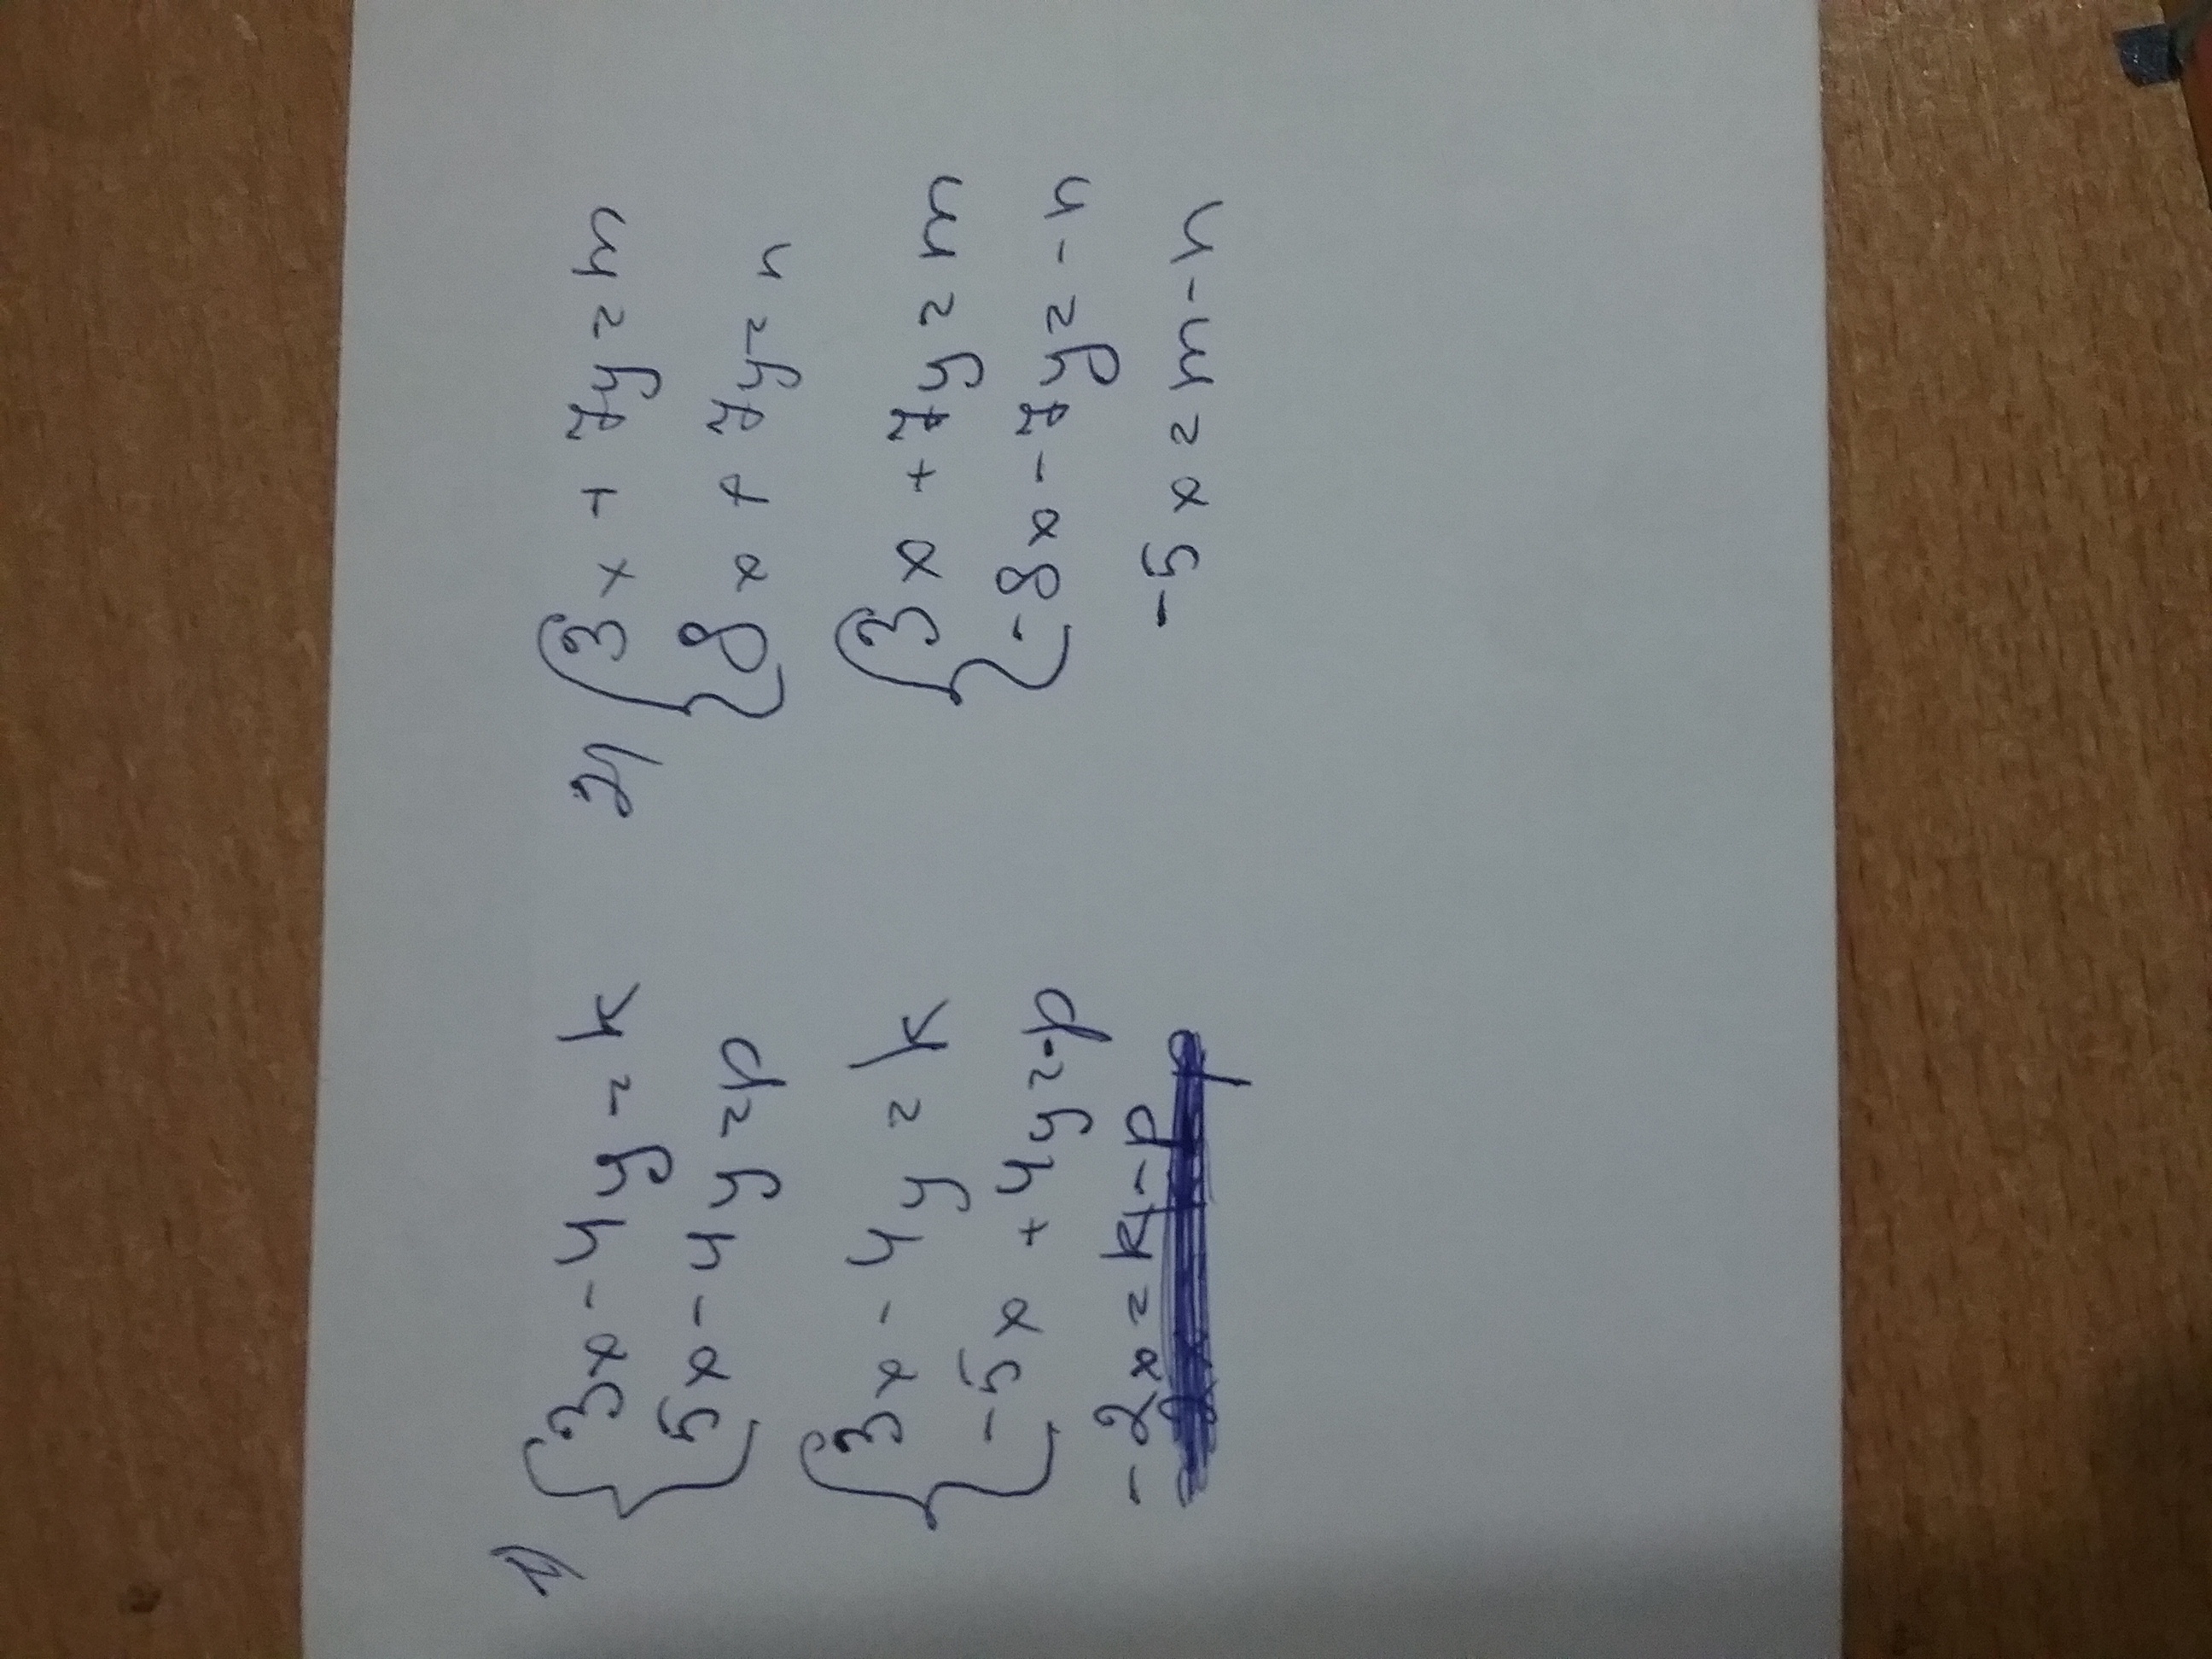 1) {3x - 4y = k
5x - 4y = p
{3x - 4y = k
-5x + 4y = -p
-2x = k - p
2) {3x + 7y = m
8x + 7y = n
{3x + 7y = m
-8x - 7y = -n
-5x = m - n